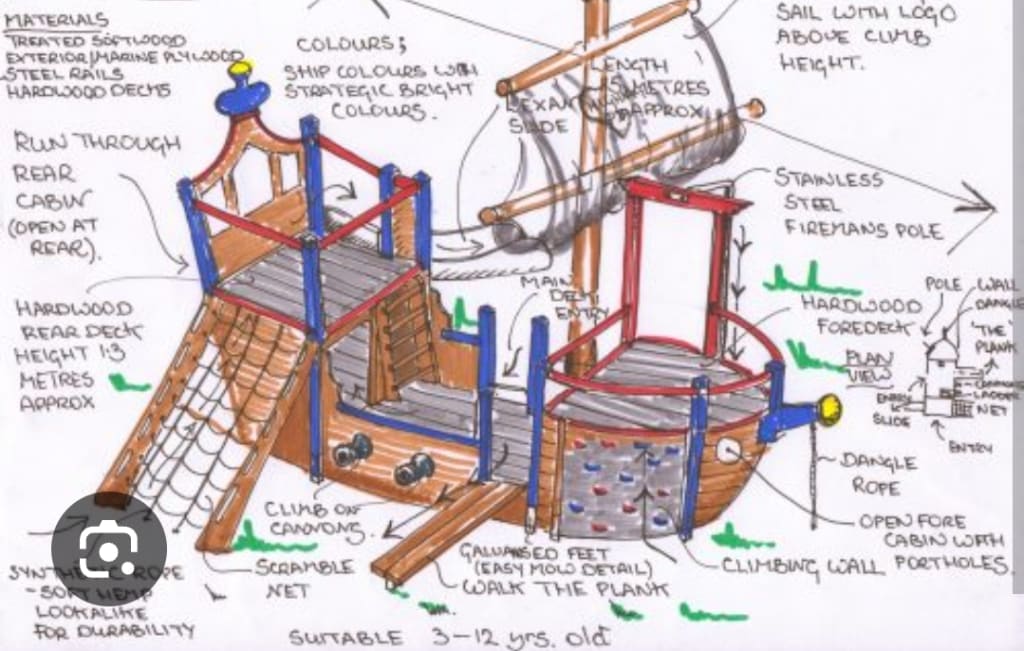 MATERIALS
TREATED SOFTWOOD
EXTERIOR/MARINE PLYWOOD
STEEL RAILS
HARDWOOD DECKS
COLOURS;
SHIP COLOURS WITH
STRATEGIC BRIGHT
COLOURS.
LENGTH
METRES
APPROX
LEXAN
SLIDE
SAIL WITH LOGO
ABOVE CLIMB
HEIGHT.
RUN THROUGH
REAR
CABIN
(OPEN AT
REAR).
STAINLESS
STEEL
FIREMANS POLE
HARDWOOD
REAR DECK
HEIGHT 1.3
METRES
APPROX
MAIN
DECK
ENTRY
HARDWOOD
FOREDECK
POLE
WALL
DANGLE
'THE'
PLANK
PLAN
VIEW
LADDER
NET
ENTRY
SLIDE
ENTRY
DANGLE
ROPE
CLIMB ON
CANNONS.
OPEN FORE
CABIN WITH
PORTHOLES.
GALVANISED FEET
(EASY MOW DETAIL)
WALK THE PLANK
CLIMBING WALL
SCRAMBLE
NET
SYNTHETIC ROPE
- SOFT HEMP
LOOKALIKE
FOR DURABILITY
SUITABLE 3-12 yrs. old